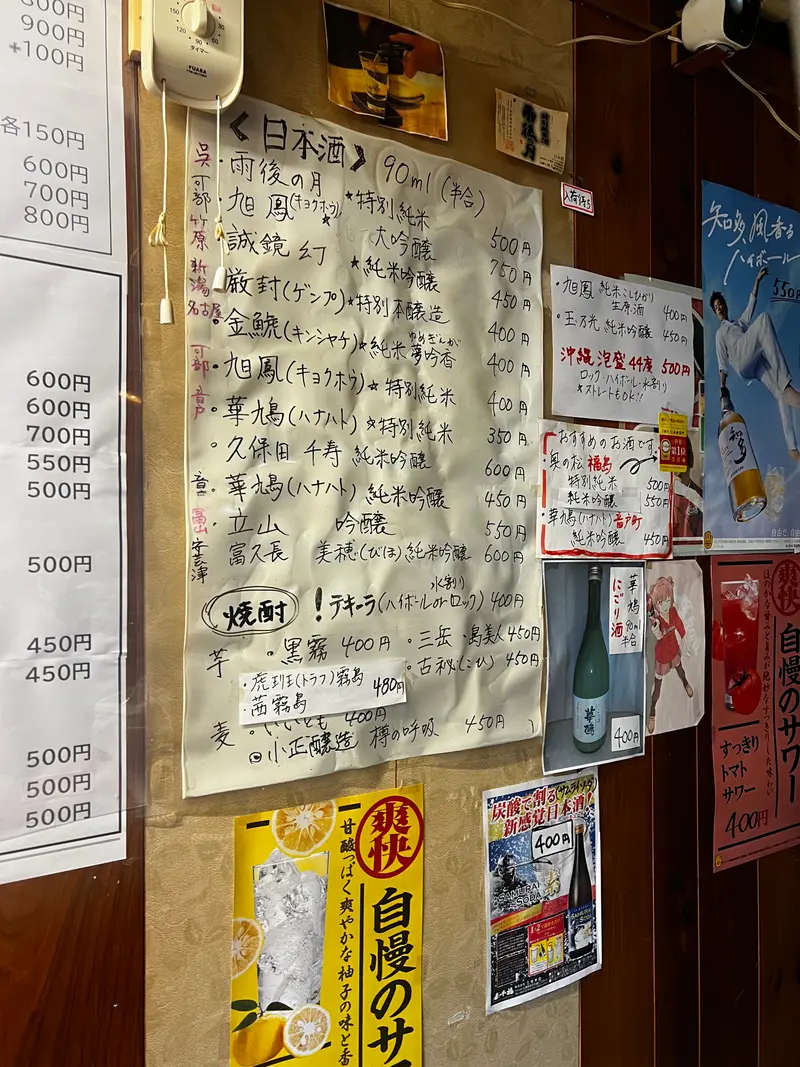 800円
900円
+100円
各150円
600円
700円
800円
600円
600円
700円
550円
500円
500円
450円
450円
500円
500円
500円
150
120
90
60
タイマー
YUASA
<日本酒> 90ml (半合)
呉・雨後の月 ★特別純米 500円
可部・旭鳳(キョクホウ)★大吟醸 750円
竹原・誠鏡 幻 ★純米吟醸 450円
新潟・厳封(ゲンプ)★特別本醸造 400円
名古屋・金鯱(キンシャチ)★純米 夢吟香 400円
ゆめぎんが
可部・旭鳳(キョクホウ)★特別純米 400円
音戸・華鳩(ハナハト)★特別純米 350円
・久保田 千寿 純米吟醸 600円
・華鳩(ハナハト) 純米吟醸 450円
富山・立山 吟醸 550円
安芸津 富久長 美穂(びほ)純米吟醸 600円
焼酎
!テキーラ(ハイボールorロック) 400円
水割り
芋・黒霧 400円
・三岳・島美人 450円
・古秘(こひ) 450円
・虎斑(トラフ)霧島
・茜霧島
480円
麦・いいとも 400円
小正醸造 樽の呼吸 450円
入荷待ち
・旭鳳 純米こしひかり
生原酒 400円
・玉乃光 純米吟醸 450円
沖縄 泡盛 44度 500円
ロック・ハイボール・水割り
★ストレートもOK!!
おすすめのお酒です
・奥の松 福島
特別純米 500円
純米吟醸 550円
・華鳩(ハナハト)音戸町
純米吟醸 450円
第1位
華鳩
90ml
半合
にごり酒
華鳩
400円
知多、風香る
ハイボール
550円
知多
爽快
自慢のサワー
すっきり
トマト
サワー
400円
爽快
自慢のサワ
甘酸っぱく爽やかな柚子の味と香
炭酸で割る(サムライ・ソーダ)
新感覚日本酒!
400円
SAMURAI
SODA
素